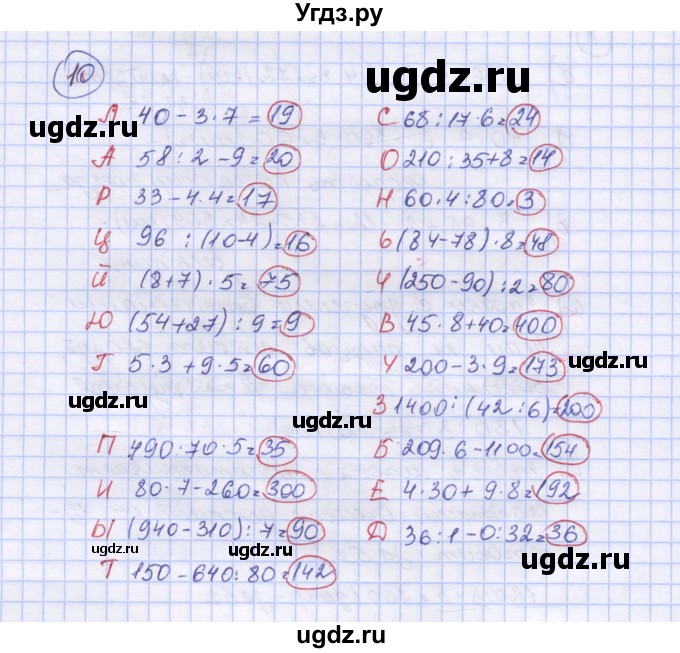 Угдз.ру
10
ugdz.ru
Л 40 - 3 · 7 = 19
ugdz.ru
А 58 : 2 - 9 = 20
Р 33 - 4 · 4 = 17
Ц 96 : (10-4) = 16
Й (8+7) · 5 = 75
Ю (54+27) : 9 = 9
Г 5 · 3 + 9 · 5 = 60
ugdz.ru
П 490 : 70 · 5 = 35
И 80 · 7 - 260 = 300
Ы (940-310) : 7 = 90
ugdz.ru
Т 150 - 640 : 80 = 142
ugdz.ru
С 68 : 17 · 6 = 24
О 210 : 35 + 8 = 14
Н 60 · 4 : 80 = 3
ugdz.ru
Ь (84-78) · 8 = 48
Ч (250-90) : 2 = 80
В 45 · 8 + 40 = 400
У 200 - 3 · 9 = 173
ugdz.ru
З 1400 : (42 : 6) = 200
Б 209 · 6 - 1100 = 154
ugdz.ru
Е 4 · 30 + 9 · 8 = 192
Д 36 : 1 - 0 : 32 = 36
ugdz.ru
ugdz.ru